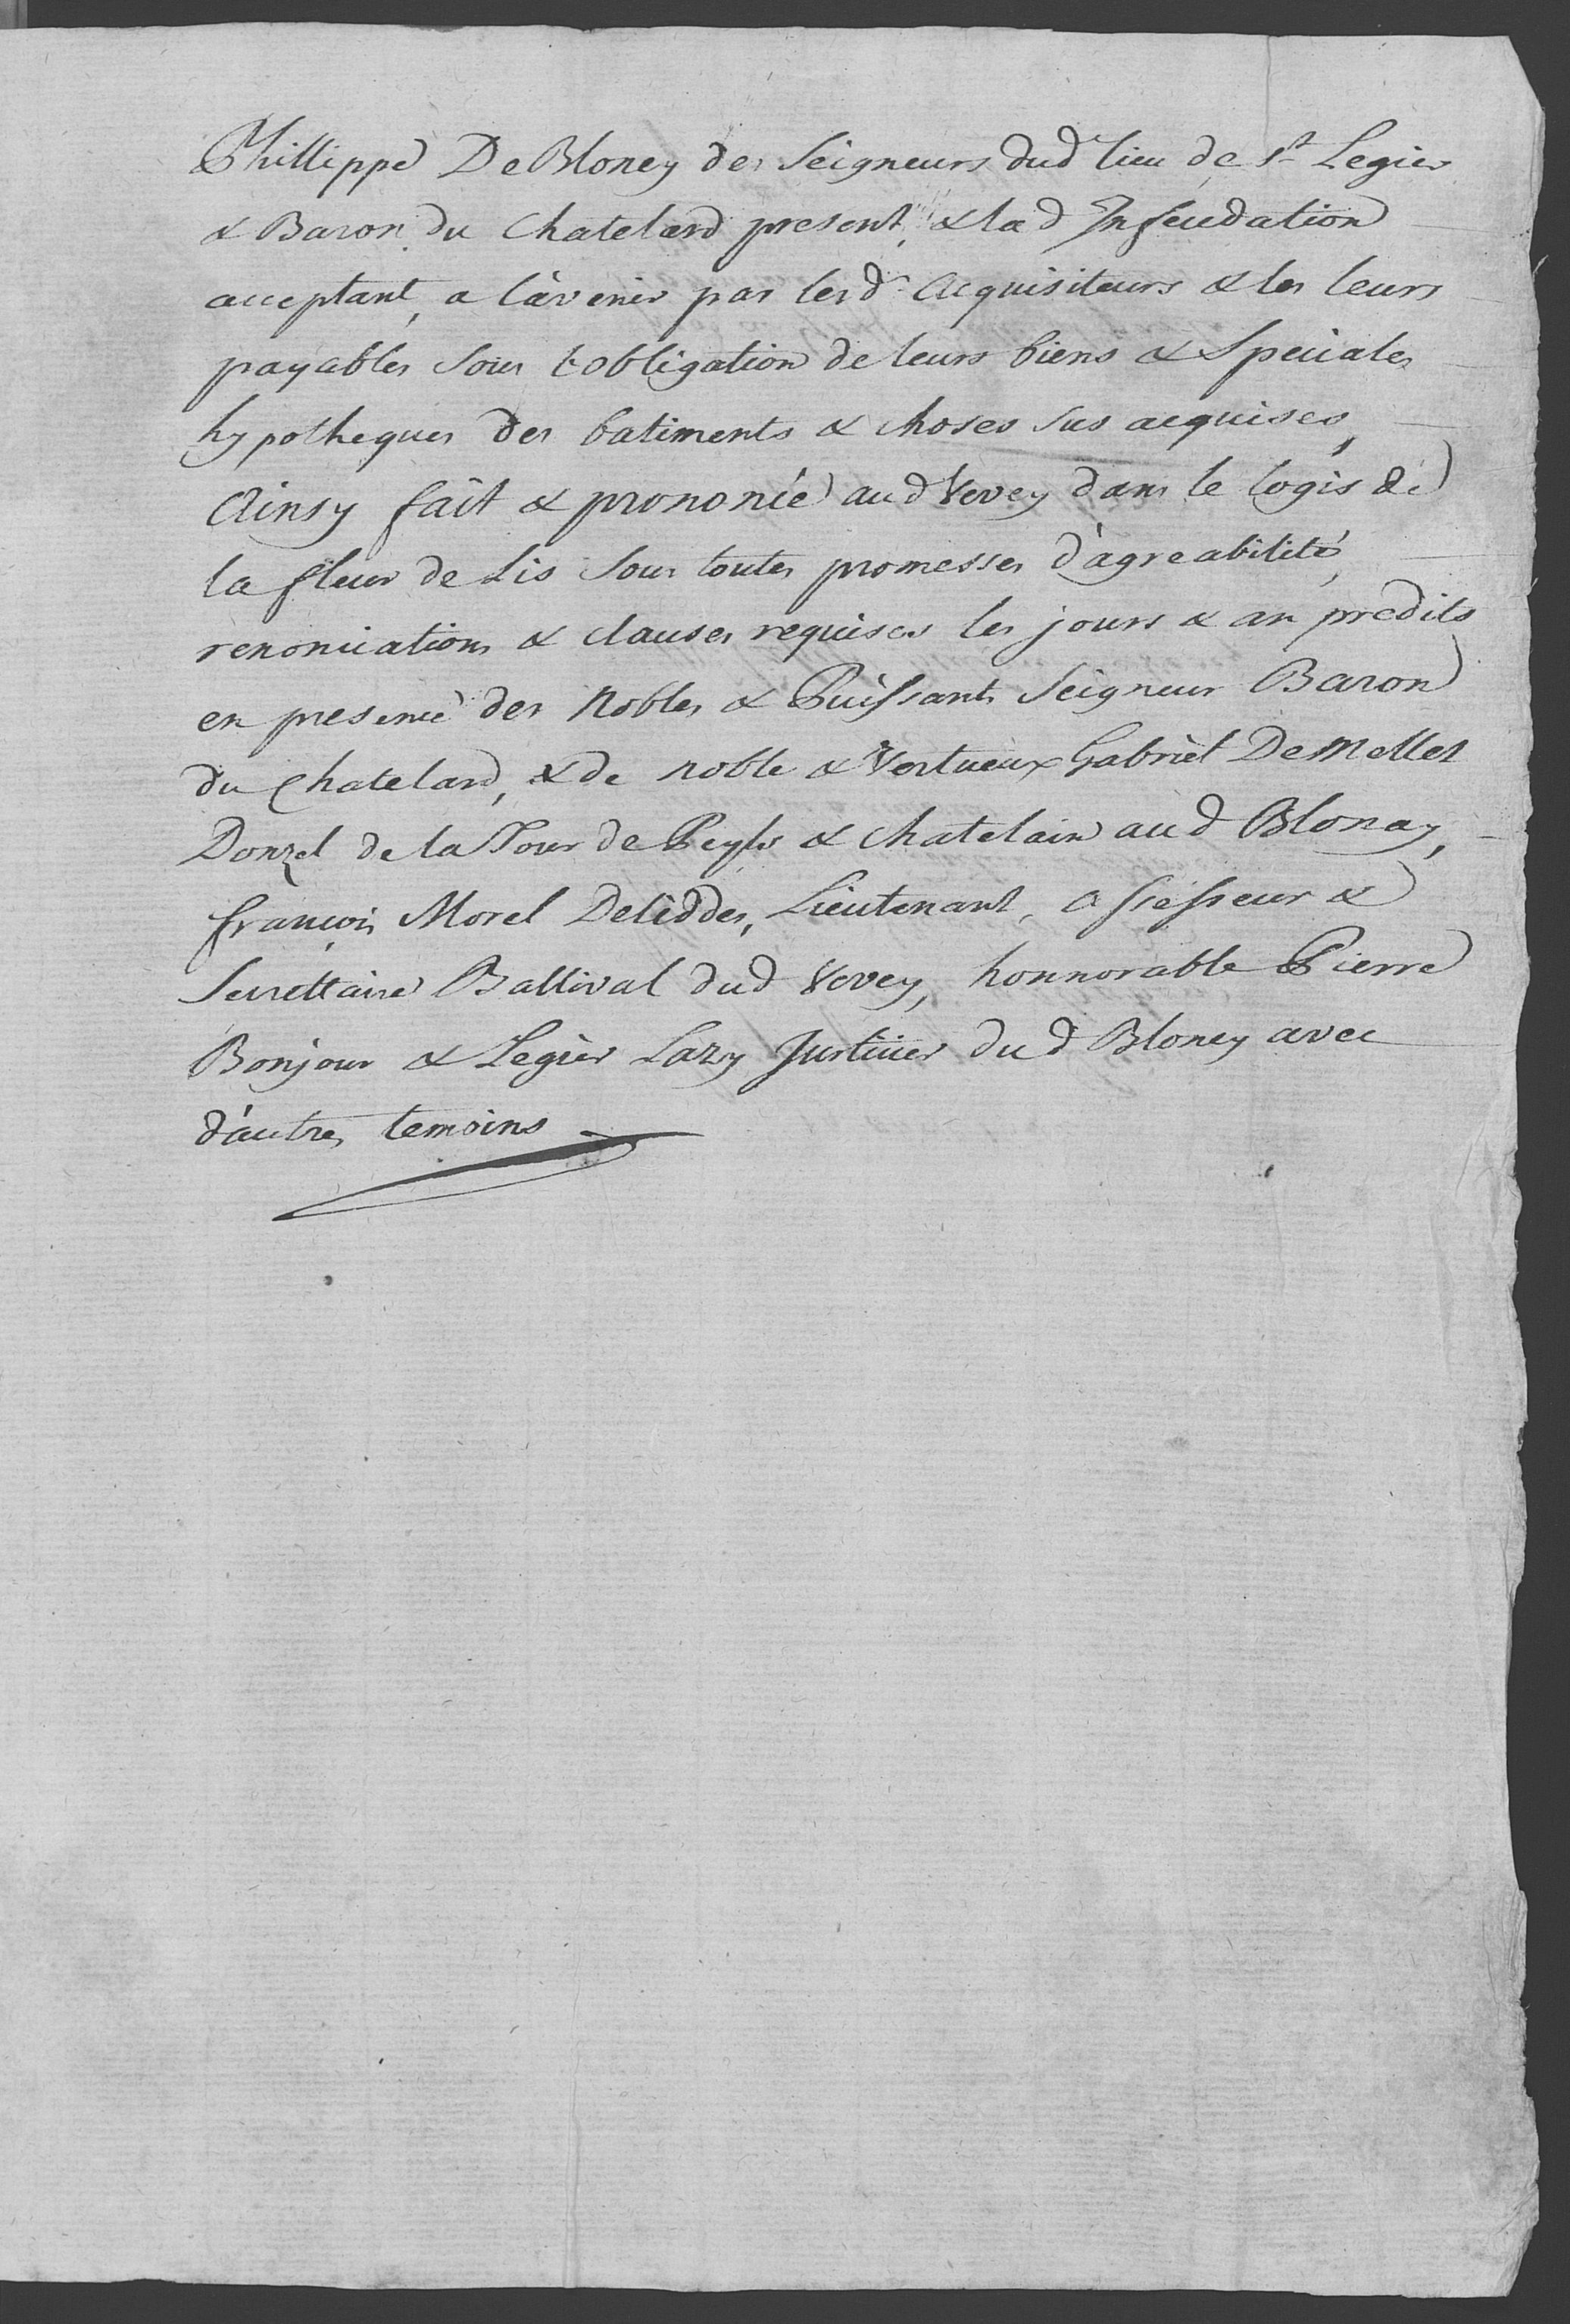 Phillippe De Bloney des Seigneurs dud lieu de St Legier
& Baron du Chatelard present, & lad Infeudation
acceptant, a l'avenir par lesd. Acquisiteurs & les leurs
payables sous l'obligation de leurs biens & Speciales
hypotheques des batiments & choses sus acquises,
Ainsy fait & prononcé aud Vevey dans le logis de
la fleur de Lis sous toutes promesses d'agreabilité,
renonciations & clauses requises les jours & an predits
en presence des Nobles & Puissants Seigneur Baron
du Chatelard, & de noble & Vertueux Gabriel De Mellet
Donzel de la Tour de Peyls & Chatelain aud Blonay,
françois Morel Deleddes, Lieutenant, assesseur &
Secrettaire Ballival dud Vevey, honnorable Pierre
Bonjour & Legier Lazy Justicier dud Bloney avec
d'autres temoins